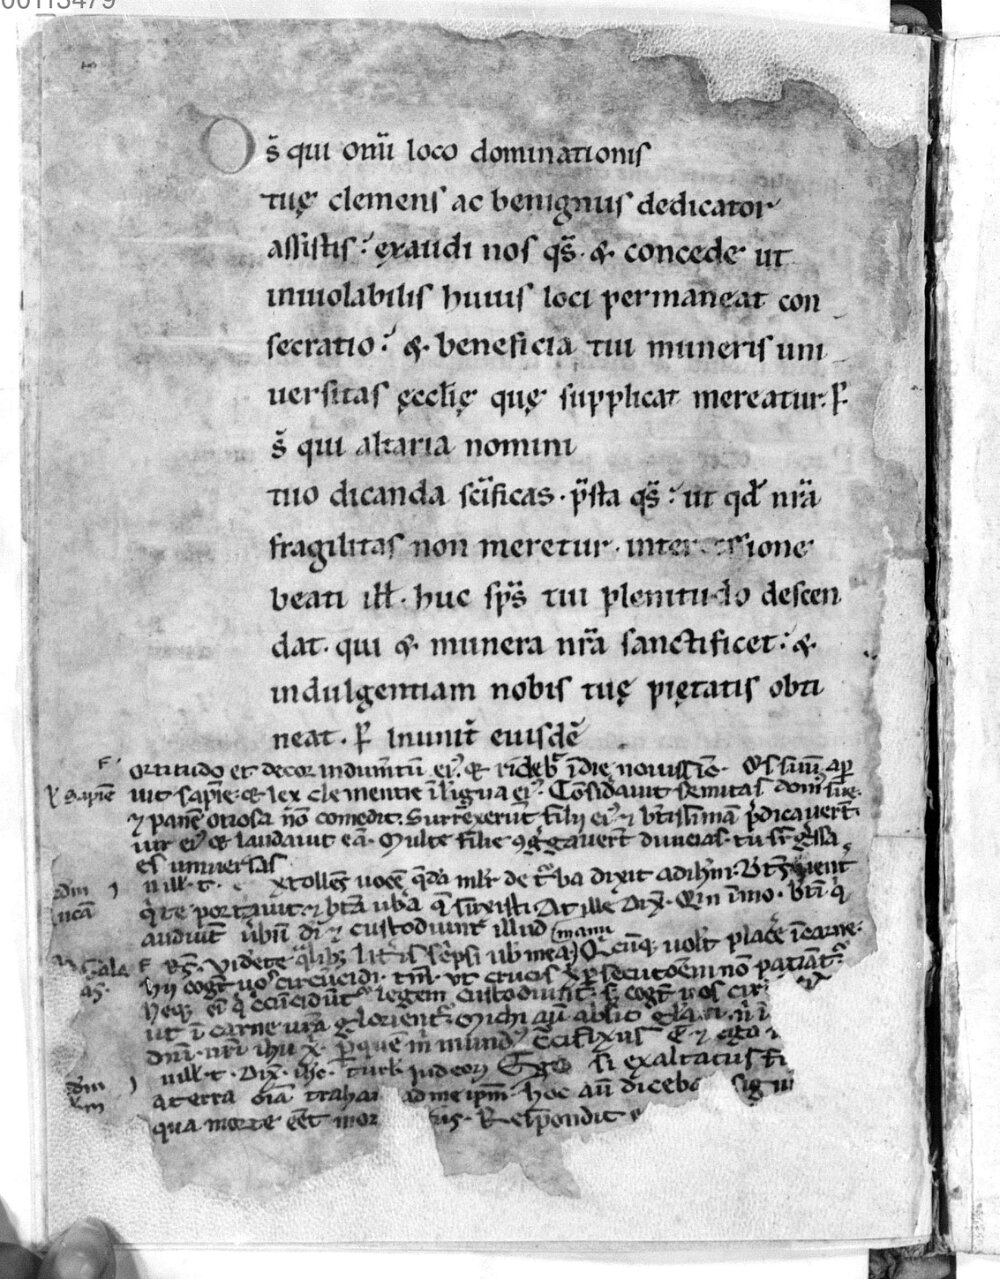 00113479
Os̄ qui om̄i loco dominationis
tuę clemens ac benignus dedicator
assistis: exaudi nos qs̄. & concede ut
inuiolabilis huius loci permaneat con
secratio: & beneficia tui muneris uni
uersitas ęcclīę quę supplicat mereatur. P̄
s̄ qui altaria nomini
tuo dicanda sc̄ificas. p̄sta qs̄: ut qd̄ nr̄a
fragilitas non meretur. intercessione
beati ill̄. huc sp̄s tui plenitudo descen
dat. qui & munera nr̄a sanctificet: &
indulgentiam nobis tuę pietatis obti
neat. P̄ In unit̄ eiusdē
F. ortitudo et decor indum̄tū ei᷒. & ridebit ī die nouissīo. Os suū ap
sapiē uit sapīe. & lex clementie ī ligua ei᷒. Cōsidauit semitas dom᷒ sue.
⁊ panē otiosa nō comedit. Surrexerut filii ei᷒ ⁊ btīssimam p̄dicauert.
uir ei᷒ & laudauit eā. Multe filie ꝯḡgauert diuicias. tu sr̄gssa
es uniuersas
n ill. t. xtollēs uocē q̄da mlr̄ de tr̄ba dixit ad ihm.
q̄ te portauit. ⁊ btā ubā q̄ suxisti. At ille dix̄. Qin īmo. bti q̄
audiūt ubū di ⁊ custodiunt illud
Gala F. Videte q̄lib᷒ litt̄is sc̄psi ub mea Q̄cūq᷒ uolt placē ī carne.
hii cogt uos circūcidi. tm̄ ut crucis psecutōem nō patiat᷒.
heq᷒ ei q̄ circūcidūt᷒ legem custodiunt. s᷒ cogt uos cir
ut ī carne ura glorient᷒. Michi aū absit gla
dnī nrī ihu x̄. p̄ quē m mund᷒ c̄cifixus ē ⁊ ego
n ill. t. Dix̄ ihc turb iudeor Ego si exaltatus fu
a terra oīa traham ad me ipm̄. hoc aū diceba signi
qua morte eēt mor us. Respondit